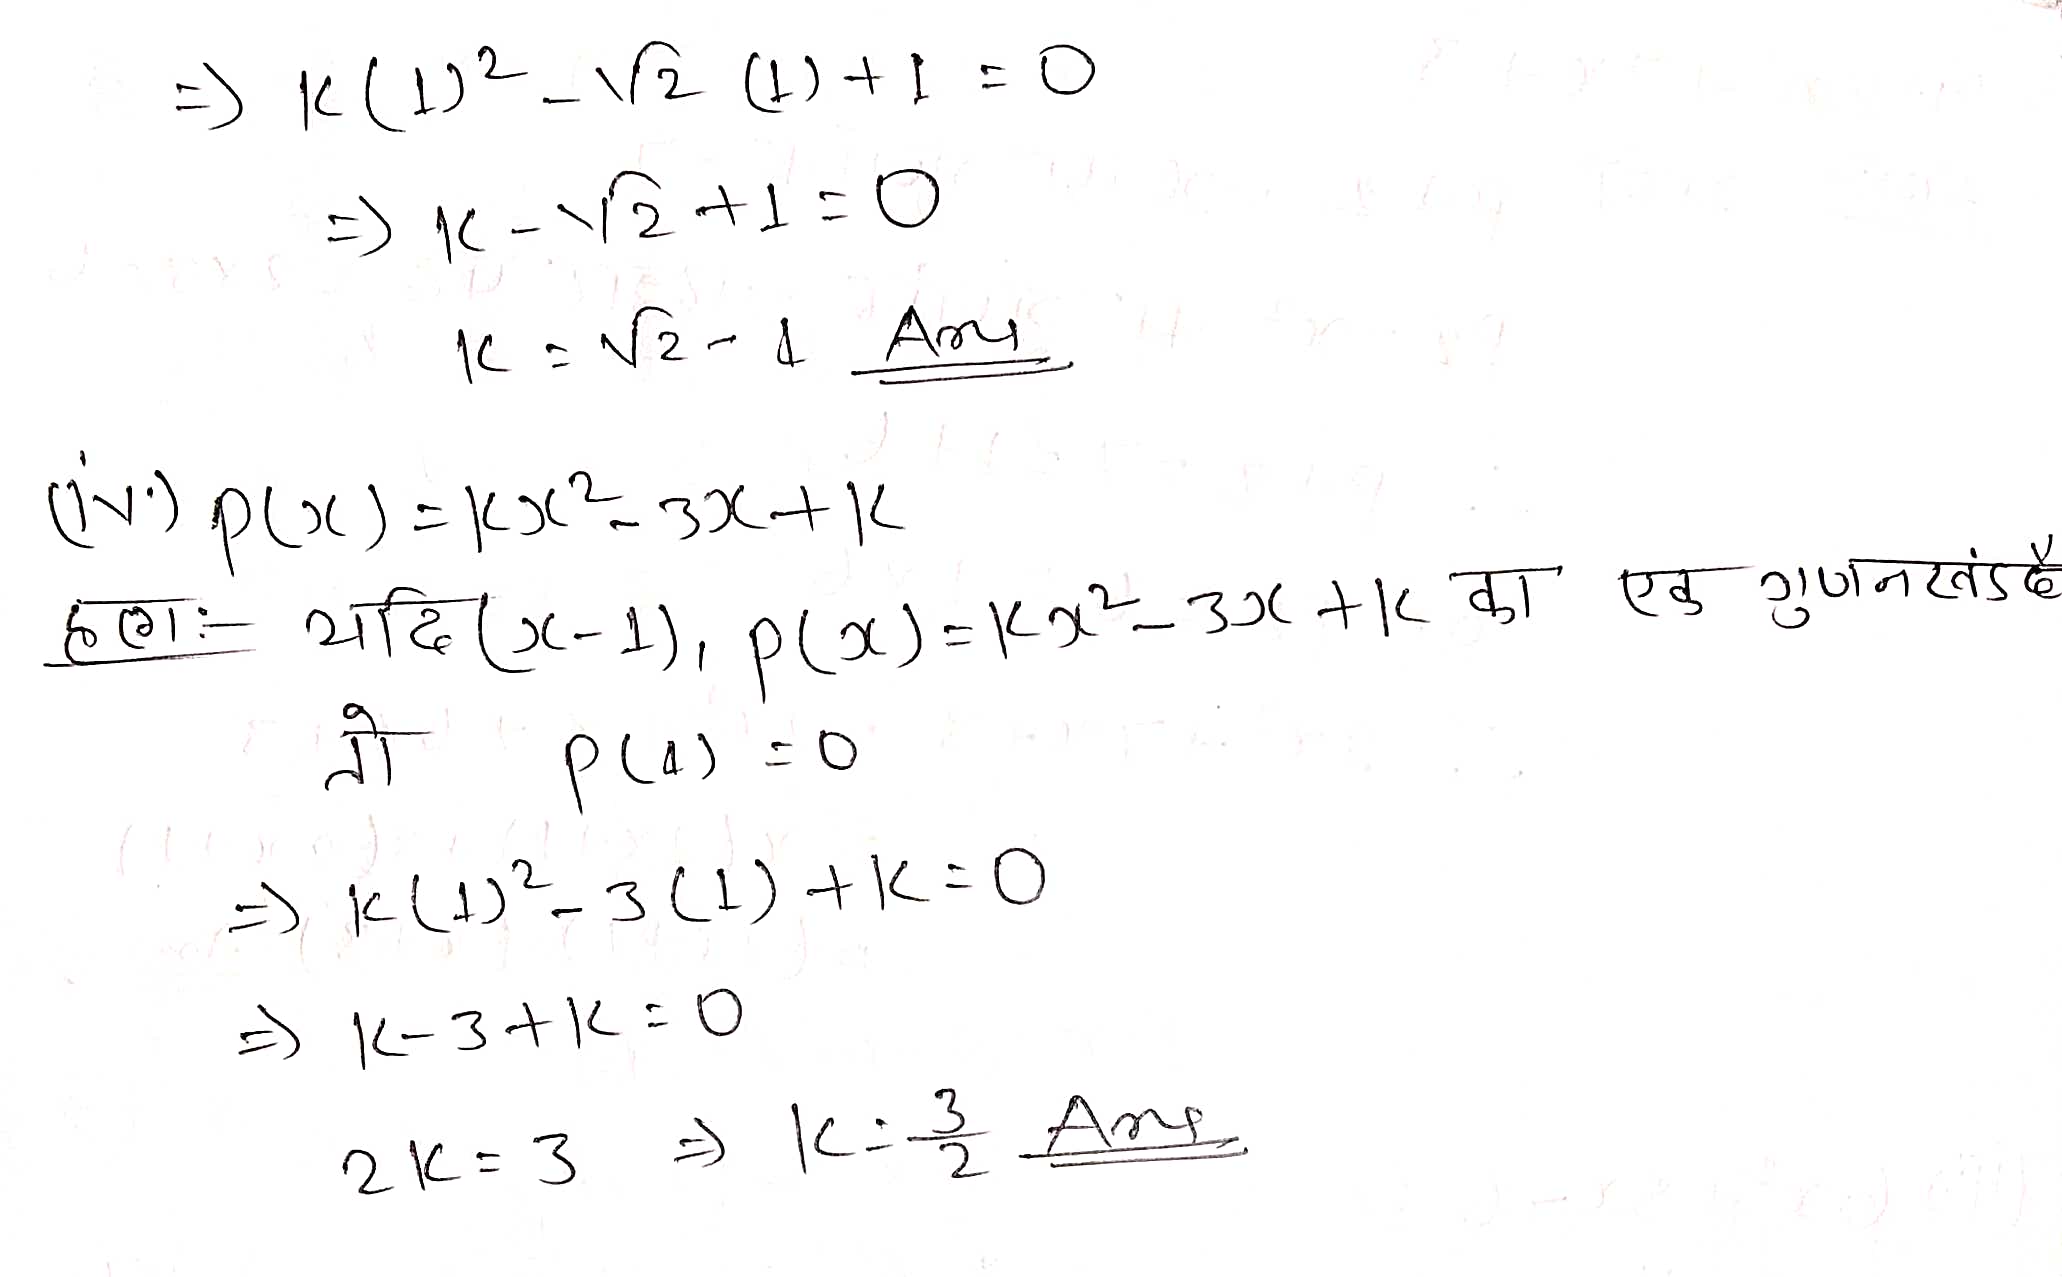 ⇒ K(1)² - √2 (1) + 1 = 0
⇒ K - √2 + 1 = 0
K = √2 - 1 Ans
(iv) p(x) = Kx² - 3x + K
हल:- यदि (x-1), p(x) = Kx² - 3x + K का एक गुणनखंड है
तो p(1) = 0
⇒ K(1)² - 3(1) + K = 0
⇒ K - 3 + K = 0
2K = 3 ⇒ K = 3/2 Ans